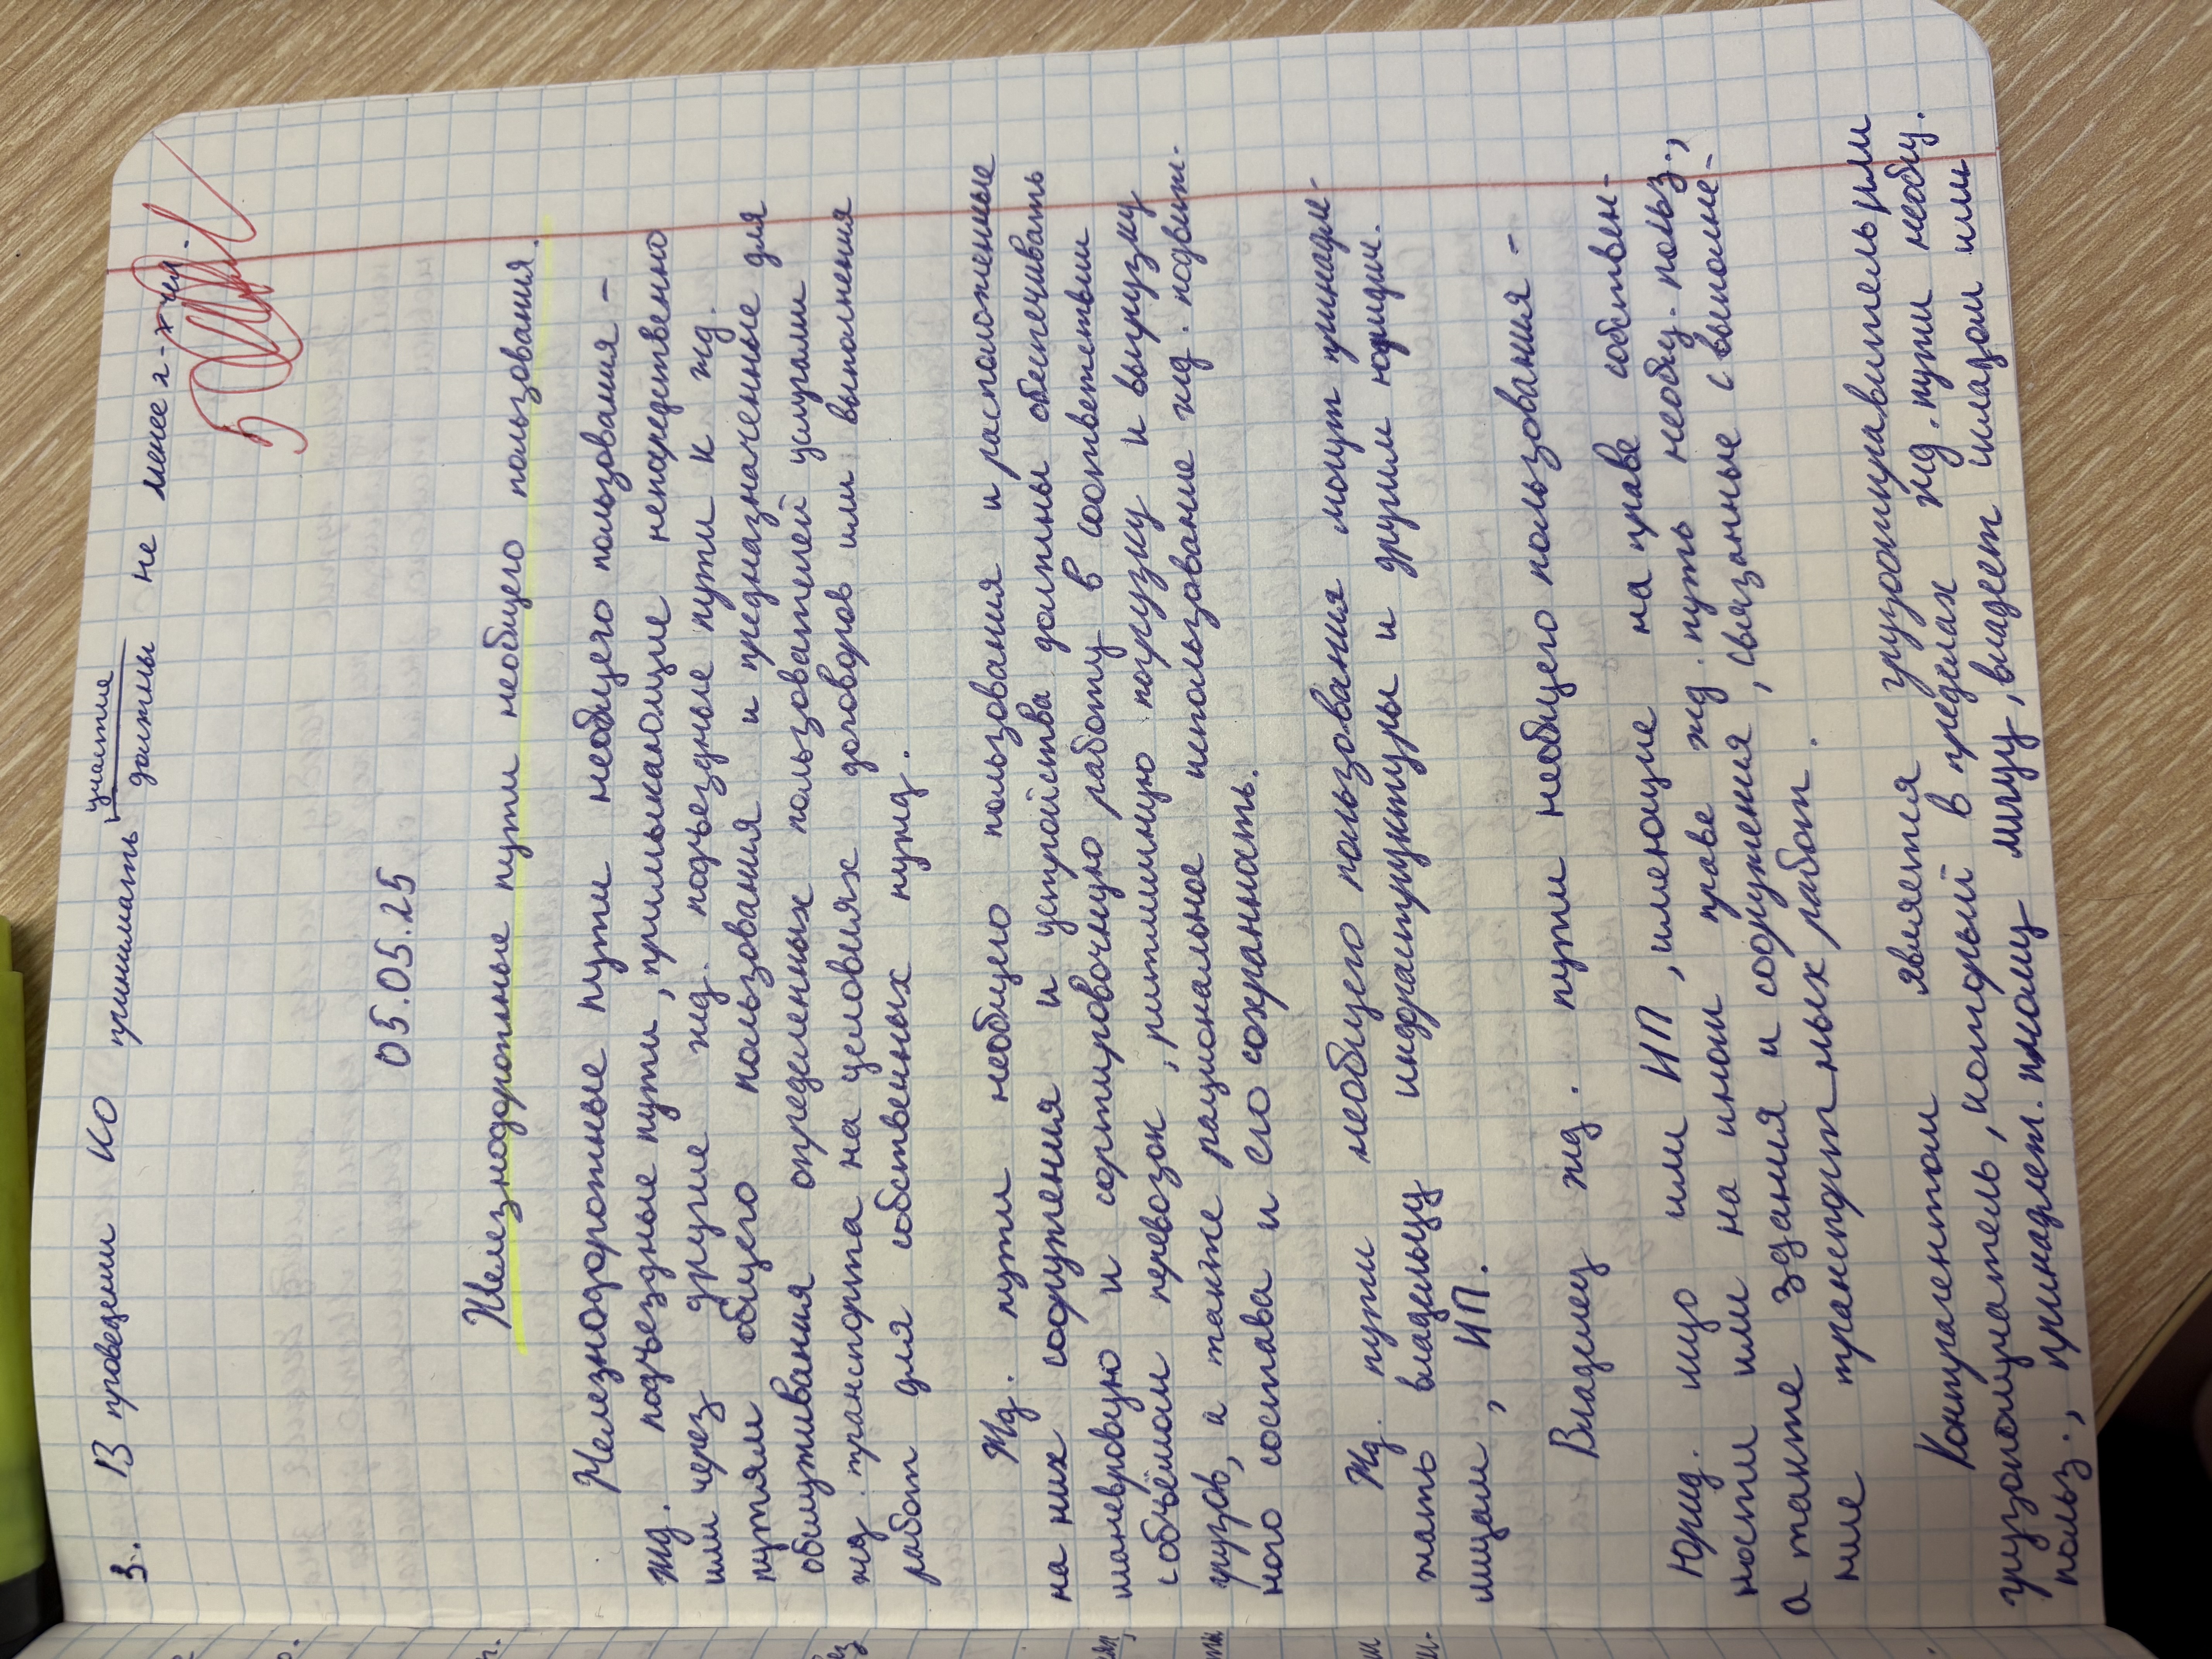 3. В проведении КО принимать участие
должны не менее 2-х чел.
5
05.05.25
Железнодорожные пути необщего пользования.
Железнодорожные пути необщего пользования -
жд. подъездные пути, примыкающие непосредственно
или через другие жд. подъездные пути к жд.
путям общего пользования и предназначенные для
обслуживания определенных пользователей услугами
жд. транспорта на условиях договоров или выполнения
работ для собственных нужд.
Жд. пути необщего пользования и расположенные
на них сооружения и устройства должны обеспечивать
маневровую и сортировочную работу в соответствии
с объёмом перевозок, ритмичную погрузку и выгрузку
грузов, а также рациональное использование жд. подвиж-
ного состава и его сохранность.
Жд. пути необщего пользования могут принадле-
жать владельцу инфраструктуры и другим юридич.
лицам, ИП.
Владелец жд. пути необщего пользования -
Юрид. лицо или ИП, имеющие на праве собствен-
ности или на ином праве жд. путь необщ. польз.,
а также здания и сооружения, связанные с выполне-
ние транспортных работ.
Контрагентом является грузоотправитель или
грузополучатель, который в пределах жд. пути необщ.
польз., принадлеж. иному лицу, владеет складом или